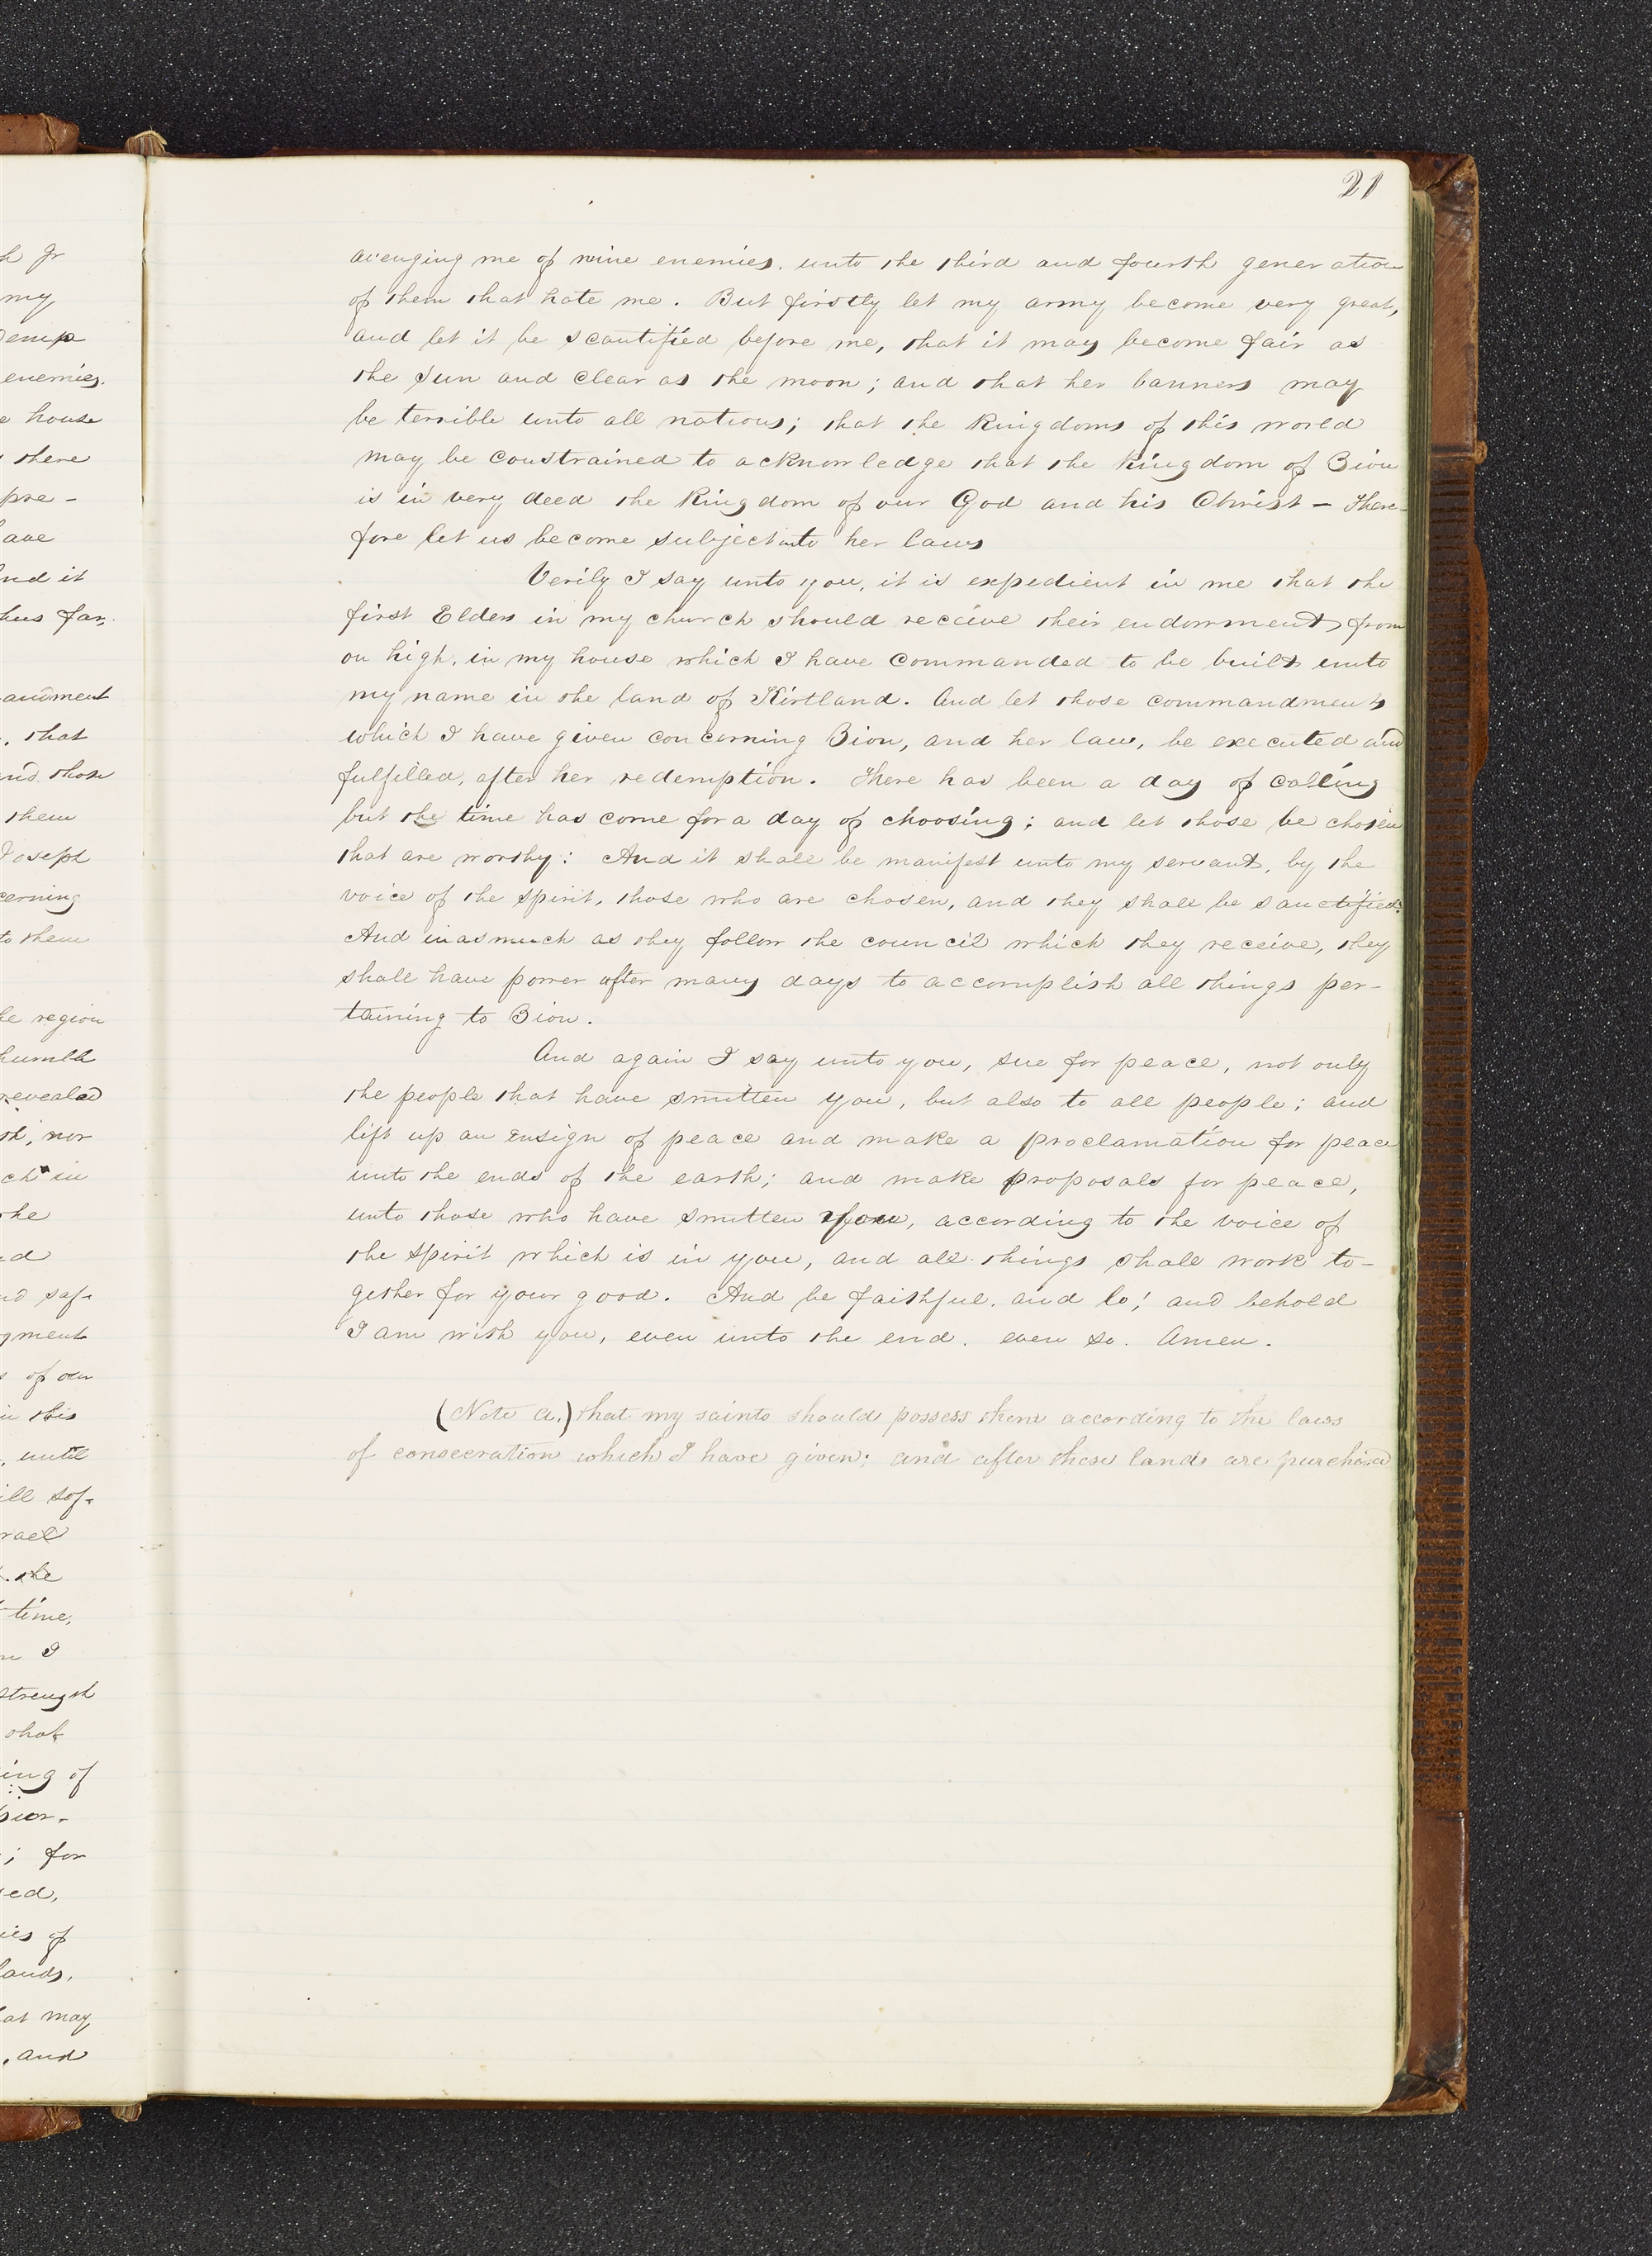 21
h Jr
my
demp
enemies.
e house
there
pre-
ave
And it
hus far,
andment
, that
and those
them
Joseph
cerning
to them
he region
humble
revealed
, nor
ch in
the
d
nd saf-
gment
s of our
in this
, until
ill sof-
rael
the
time,
n I
strength
that
ing of
; for
ed,
ies of
lands,
at may
, and
avenging me of mine enemies. unto the third and fourth generation
of them that hate me. But firstly let my army become very great,
and let it be scantified before me, that it may become fair as
the Sun and Clear as the moon; and that her banners may
be terrible unto all nations; that the Kingdoms of this world
may be constrained to acknowledge that the Kingdom of Zion
is in very deed the Kingdom of our God and his Christ - There-
fore let us become subject unto her laws
Verily I say unto you, it is expedient in me that the
first Elders in my church should receive their endowment from
on high, in my house which I have Commanded to be built unto
my name in the land of Kirtland. And let those commandments
which I have given concerning Zion, and her law, be executed and
fulfilled, after her redemption. There has been a day of Calling
but the time has come for a day of choosing; and let those be chosen
that are worthy: And it shall be manifest unto my servant, by the
voice of the spirit, those who are chosen, and they shall be sanctified:
And inasmuch as they follow the council which they receive, they
shall have power after many days to accomplish all things per-
taining to Zion.
And again I say unto you, sue for peace, not only
the people that have smitten you, but also to all people; and
lift up an Ensign of peace and make a proclamation for peace
unto the ends of the earth; and make proposals for peace,
unto those who have smitten you, according to the voice of
the spirit which is in you, and all things shall work to-
gether for your good. And be faithful. and lo! and behold
I am with you, even unto the end. even so. Amen.
(Note A.) that my saints should possess them according to the laws
of consecration which I have given; and after these lands are purchased